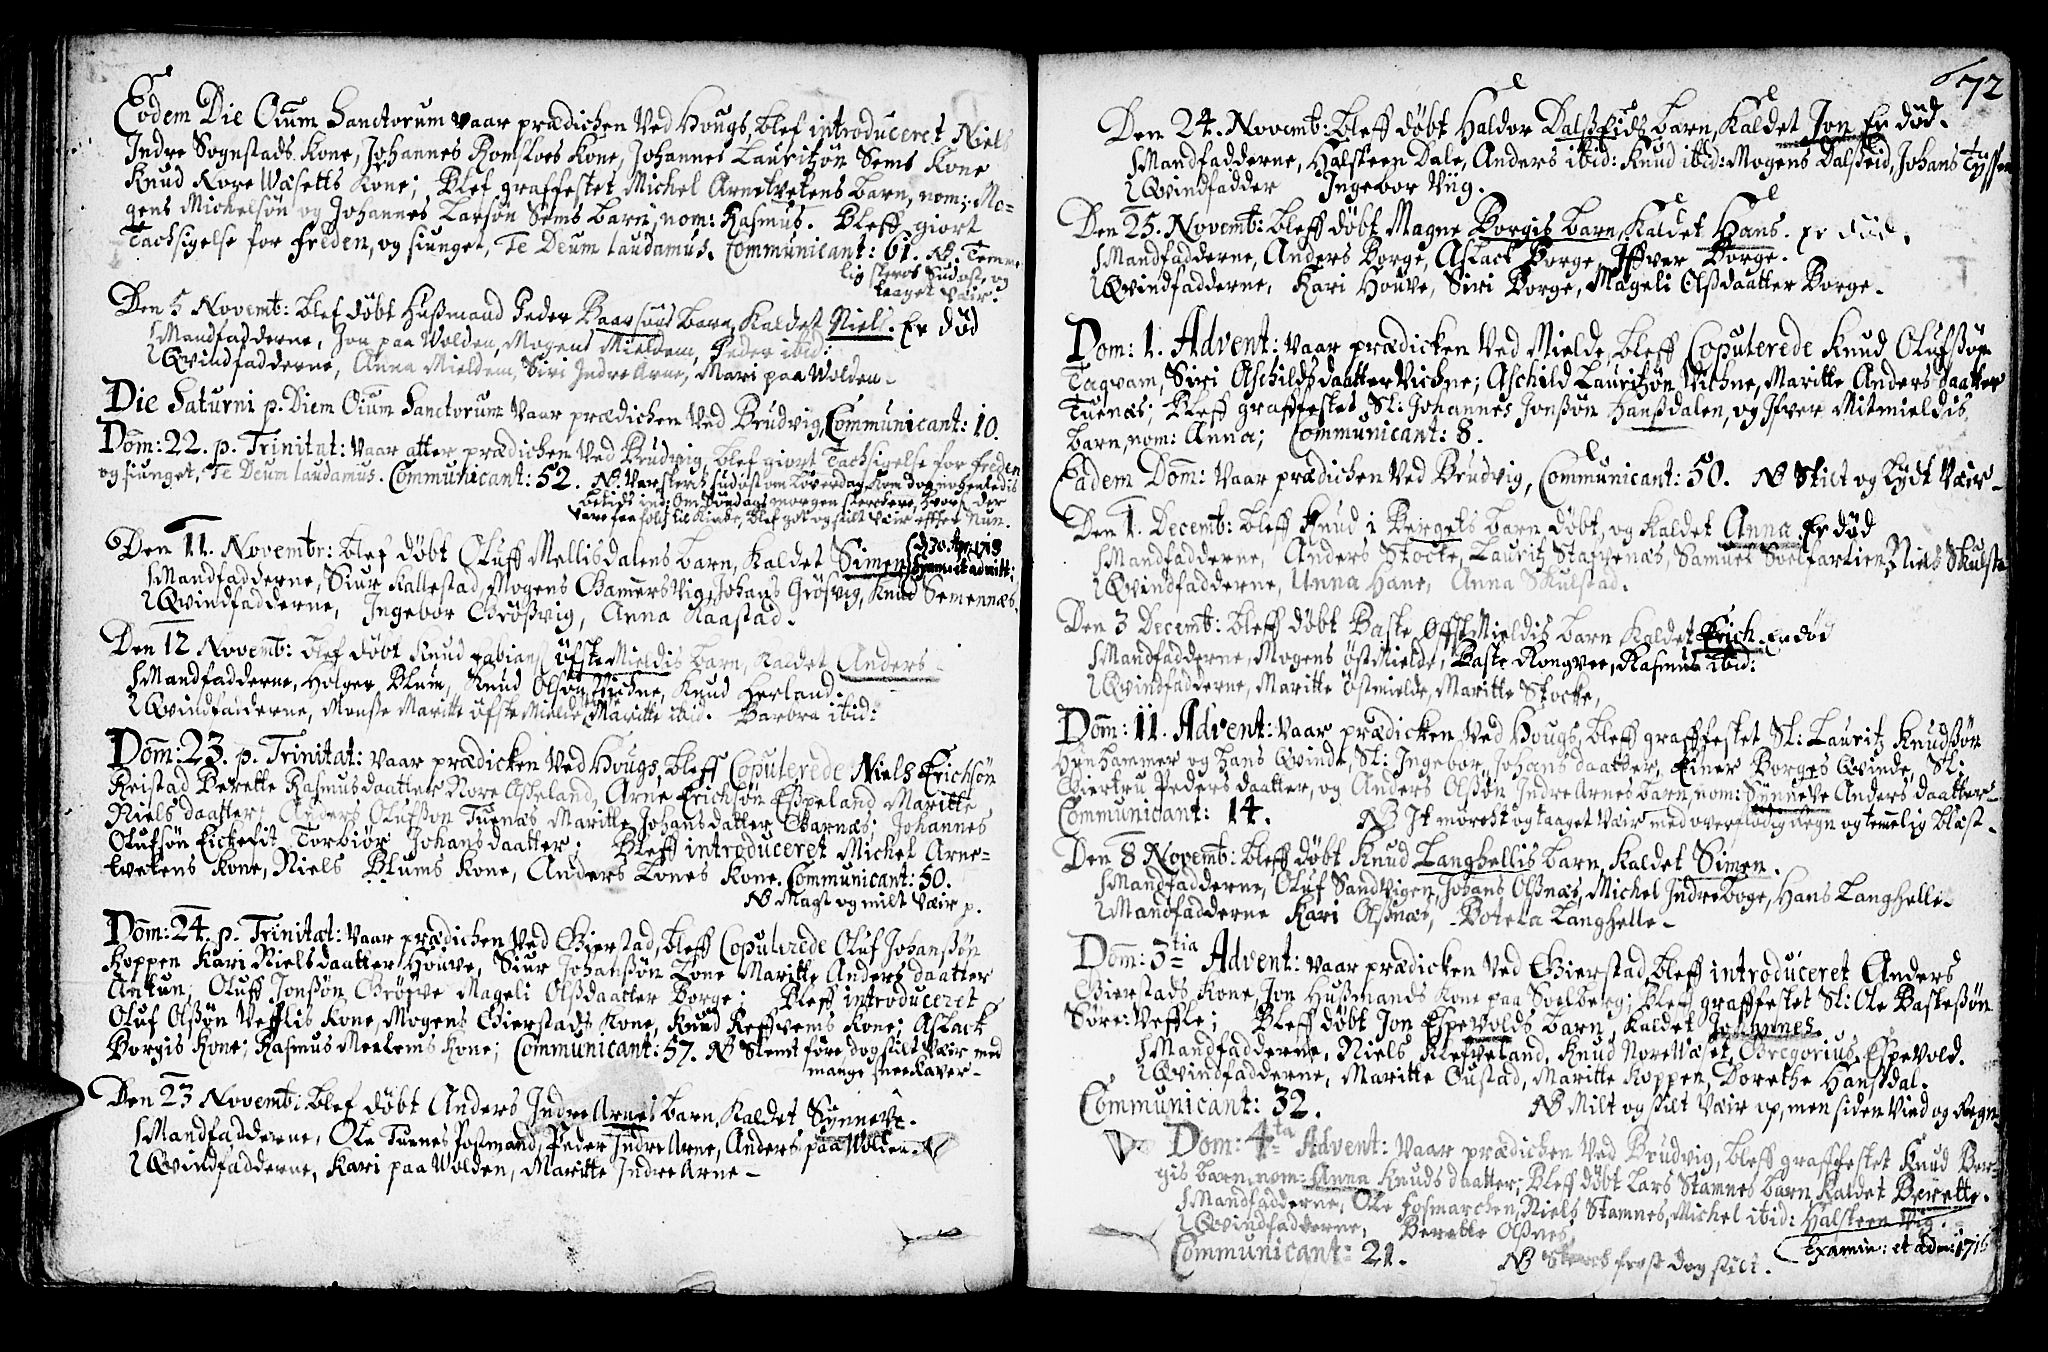 Eodem Die Oium Sanctorum vaar prædichen ved Hougs, blef introduceret Niels
Indre Sognstads Kone, Johannes Romsloes Kone, Johannes Lauritzøn Sems Kone
Knud Nore Wæsetts Kone; Blef graffestet Michel Arnetvetens barn, nom: Mo-
gens Michelsøn og Johannes Larsøn Sems barn, nom: Rasmus. Bleff giort
Tachsigelse for freden, og siunget, Te Deum laudamus. Communicant: 61. NB. Temme
lig sterck Sudost og
taaget væir.
Den 5 Novemb: blef døbt Hußmand Peder Baarsøns barn, Kaldet Niels. Er død
Mandfadderne, Jon paa Wolden, Mogens Mieldem, Peder ibid:
Qvindfadderne, Anna Mieldem, Siri Indre Arne, Mari paa Wolden.
Die Saturni p. Diem Oium Sanctorum vaar prædichen ved Brudvig, Communicant: 10.
Dom: 22. p. Trinitat: vaar atter prædichen ved Brudvig, blef giort Tachsigelse for freden
og siunget, Te Deum laudamus. Communicant: 52. NB. Var sterck sudost om Løverdag, Kom dog nohenledis
betids ind: Om Søndags morgen sterckere, hvorf. der
vare faa folch til Kircke, blef got og stilt væir effter Nun.
Den 11. Novembr: blef døbt Oluff Mellisdalens barn, Kaldet Simen d. 30 Apr. 1713
Examin: et admitt:
Mandfadderne, Siur Kallestad, Mogens Gamersvig, Johans Grøsvig, Knud Semennæs.
Qvindfadderne, Ingebor Grøßvig, Anna Naastad.
Den 12 Novemb: blef døbt Knud Fabians øfste Mieldis barn, Kaldet Anders
Mandfadderne, Holger Blum, Knud Olsøn Vichne, Knud Herland.
Qvindfadderne, Monße Maritte øfste Mielde, Maritte ibid. Barbra ibid:
Dom: 23. p. Trinitat: vaar prædicken ved Hougs, bleff Copulerede Niels Erichsøn
Reistad Berette Rasmusdaatter Nore Asseland, Arne Erichsøn Espeland Maritte
Nielsdaatter; Anders Olufsøn Tuenæs Maritte Johansdatter Garnæs; Johannes
Olufsøn Eickedit, Torbiør Johansdaatter; Bleff introduceret Michel Arne-
tvetens Kone, Niels Blums Kone, Anders Tones Kone. Communicant: 50.
NB Magt og milt væir p.
Dom: 24. p. Trinitat: vaar prædichen ved Gierstad, bleff Copulerede Oluf Johansøn
Koppen Kari Nielsdaatter Houve, Siur Johansøn Tone Maritte Andersdaatter
Antun; Oluff Jonsøn Grøsve Mageli Olsdaatter Borge; Bleff introduceret
Oluf Olsøn Vefflis Kone, Mogens Gierstads Kone, Knud Reffvems Kone; Aslack
Borgis Kone; Rasmus Meelems Kone; Communicant: 57. NB Slemt føre dog stilt væir med
mange sneelaver.
Den 23 Novemb: blef døbt Anders Indre Arnes barn, Kaldet Synneve.
Mandfadderne, Ole Tuenes Postmand, Peder Indre Arne, Anders paa Wolden.
Qvindfadderne, Kari paa Wolden, Maritte Indre Arne
72
Den 24. Novemb: bleff døbt Haldor Dalsseids barn, Kaldet Jon Er død.
Mandfadderne, Halsteen Dale, Anders ibid: Knud ibid: Mogens Dalseid, Johans Tyssen
Qvindfadder Ingebor Viig.
Den 25. Novemb: bleff døbt Magne Borgis barn, Kaldet Hans. Er død.
Mandfadderne, Anders Borge, Aslack Borge, Iffver Borge.
Qvindfadderne, Kari Houve, Siri Borge, Mageli Olßdaatter Borge.
Dom: 1. Advent: vaar prædicken ved Mielde, bleff Copulerede Knud Olufsøn
Taqvam, Siri Aschildsdaatter Vichne; Aschild Lauritzøn Vichne, Maritte Andersdaatter
Tuenæs; Bleff graffestet Sl: Johannes Jonsøn Hansdalen, og Ifver Mitmieldis
barn, nom: Anna; Communicant: 8.
Eadem Dom: vaar prædichen ved Brudvig, Communicant: 50. NB Stilt og lydt væir.
Den 1. Decemb: bleff Knud i Bergets barn døbt, og kaldet Anna Er død
Mandfadderne, Anders Stocke, Lauritz Stapvenæs, Samuel Soelfartien, Niels Skulsta
Qvindfadderne, Anna Hane, Anna Skulstad.
Den 3 Decemb: bleff døbt Baste Øfste Mieldis barn kaldet Erich. Er død
Mandfadderne, Mogens Østmielde, Baste Rongvee, Rasmus ibid:
Qvindfadderne, Maritte Østmielde, Maritte Stocke,
Dom: 11. Advent: vaar prædicken ved Hougs, bleff graffestet Sl: Lauritz Knudsøn
Hynhammer og hans Qvinde, Sl: Ingebor Johansdaatter, Einer Borges Qvinde, Sl:
Giertru Pedersdaatter, og Anders Olsøn Indre Arnes barn, nom: Synneve Andersdaatter.
Communicant: 14. NB It mørcht og taaget væir med overflødig regn og temelig blæst.
Den 8 Novemb: bleff døbt Knud Langhellis barn, kaldet Simen.
Mandfadderne, Oluf Sandvigen, Johans Olßnæs, Michel Indre Boge, Hans Langhelle.
Mandfadderne Kari Olßnæs, Botela Langhelle.
Dom: 3tia Advent: vaar prædicken ved Gierstad, bleff introduceret Anders
Gierstads Kone, Jon Hußmands Kone paa Soelberg; bleff graffestet Sl: Ole Bastesøn
Søre: Veffle; Bleff døbt Jon Espevolds barn, kaldet Johannes.
Mandfadderne, Niels Refveland, Knud Nore Wæset, Gregorius Espevold.
Qvindfadderne, Maritte Oustad, Maritte Koppen, Dorethe Hansdal.
Communicant: 32. NB Milt og stilt væir op, men siden Vind og Regn.
Dom: 4ta Advent: vaar prædichen ved Brudvig, bleff graffestet Knud Ber-
gis barn, nom: Anna Knudsdaatter; Bleff døbt Lars Stamnes barn, Kaldet Berette.
Mandfadderne, Ole Fosmarchen, Niels Stamnes, Michel ibid: Halsteen Vig.
Qvindfadderne, Berette Olßnes.
Examin: et adm: 1716
Communicant: 21. NB Sterck frost dog stilt.